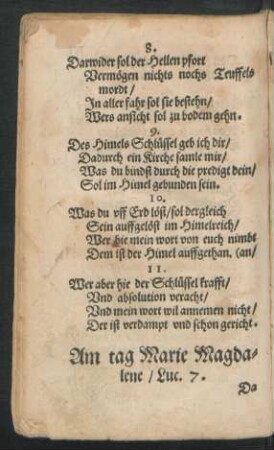 8.
Darwider sol der Hellen pfort
Vermögen nichts nochs Teuffels
mordt /
In aller fahr sol sie bestehn /
Wers anficht sol zu bodem gehn.
9.
Des Himels Schlüssel geb ich dir /
Dadurch ein Kirche samle mir /
Was du bindst durch die predigt dein /
Sol im Himel gebunden sein.
10.
Was du vff Erd löst / sol dergleich
Sein auffgelöst im Himelreich /
Wer hie mein wort von euch nimbt
Dem ist der Himel auffgethan. (an /
11.
Wer aber hie der Schlüssel krafft /
Vnd absolution veracht /
Vnd mein wort wil annemen nicht /
Der ist verdampt vnd schon gericht.
Am tag Marie Magda-
lene / Luc. 7.
Da